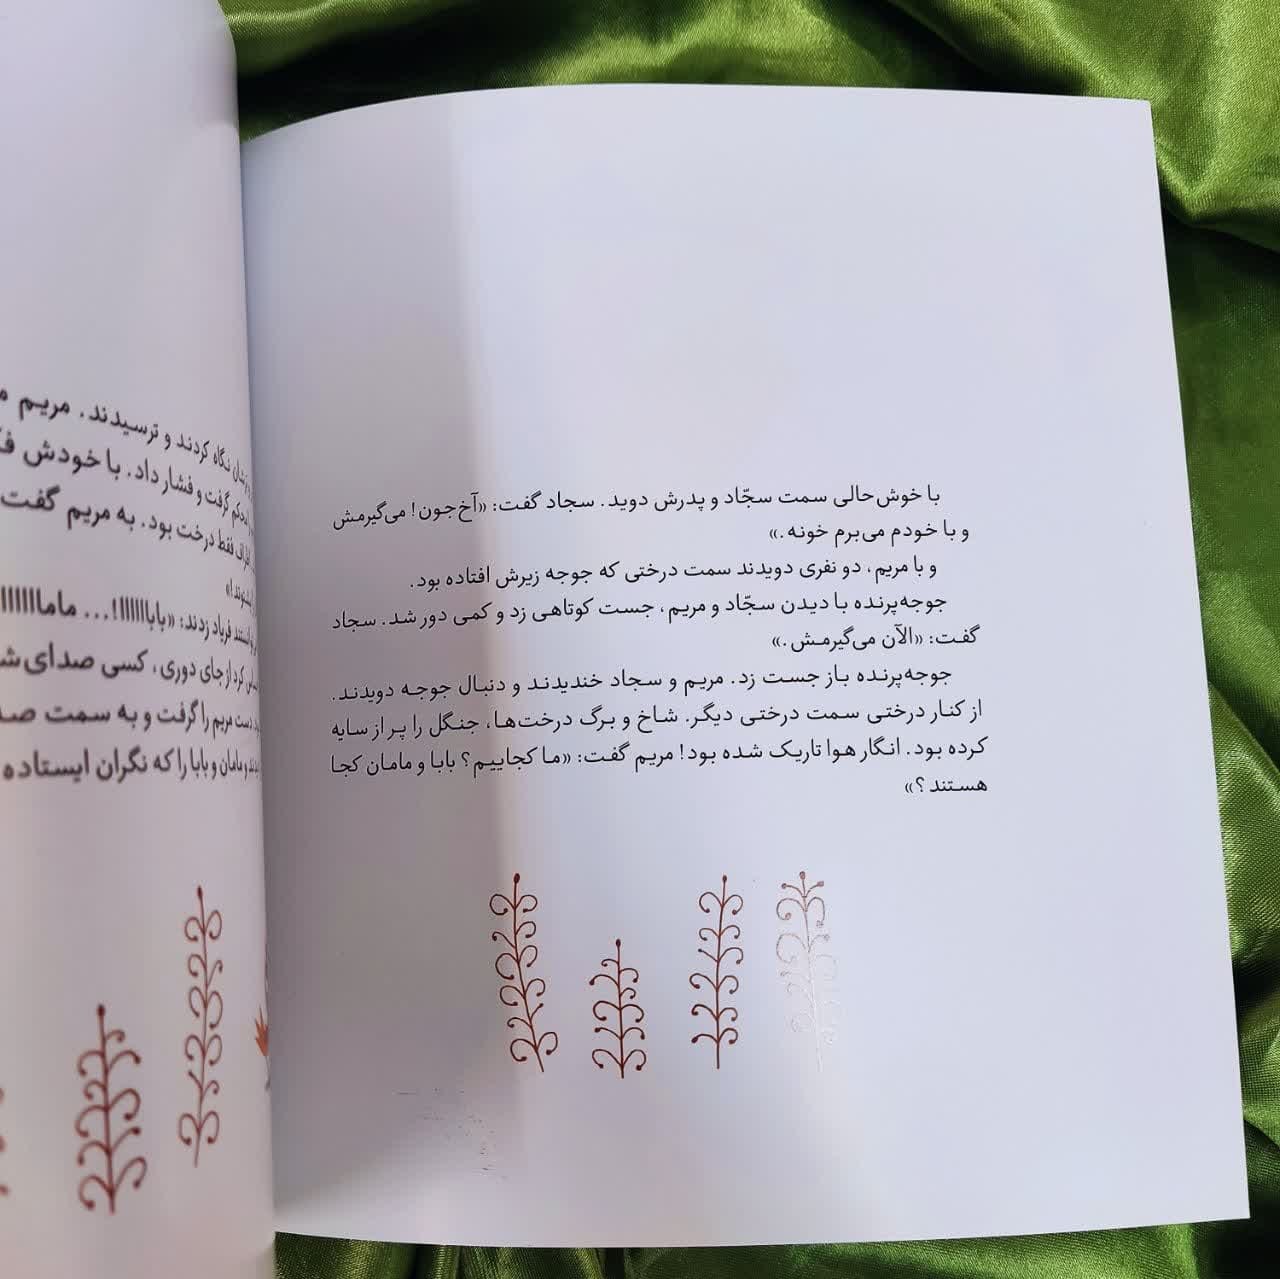 با خوش‌حالی سمت سجّاد و پدرش دوید. سجاد گفت: «آخ‌جون! می‌گیرمش
و با خودم می‌برم خونه.»
و با مریم، دو نفری دویدند سمت درختی که جوجه زیرش افتاده بود.
جوجه‌پرنده با دیدن سجّاد و مریم، جست کوتاهی زد و کمی دور شد. سجاد
گفت: «الآن می‌گیرمش.»
جوجه‌پرنده باز جست زد. مریم و سجاد خندیدند و دنبال جوجه دویدند.
از کنار درختی سمت درختی دیگر. شاخ و برگ درخت‌ها، جنگل را پر از سایه
کرده بود. انگار هوا تاریک شده بود! مریم گفت: «ما کجاییم؟ بابا و مامان کجا
هستند؟»
نگاه کردند و ترسیدند. مریم
محکم گرفت و فشار داد. با خودش
فقط درخت بود. به مریم گفت
فریاد زدند: «بابااااااا!... ماماااااا
کرد از جای دوری، کسی صدای
دست مریم را گرفت و به سمت
و مامان و بابا را که نگران ایستاده